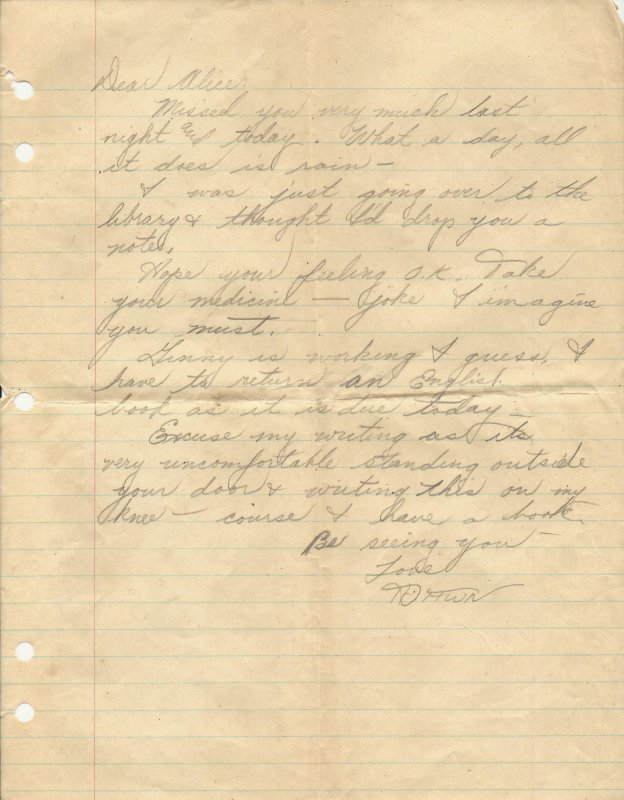 Dear Alice,
Missed you very much last
night and today. What a day, all
it does is rain —
I was just going over to the
library & thought I'd drop you a
note.
Hope your feeling O.K. Take
your medicine — joke I imagine
you must.
Ginny is working I guess. I
have to return an English
book as it is due today —
Excuse my writing as its
very uncomfortable standing outside
your door & writing this on my
knee — course I have a book.
Be seeing you —
Love